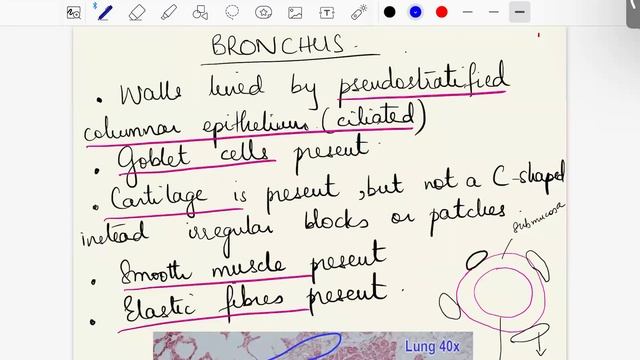 BRONCHUS.
• Walls lined by pseudostratified
columnar epithelium (ciliated)
• Goblet cells present.
• Cartilage is present, but not a C-shaped
instead irregular blocks or patches.
submucosa
• Smooth muscle present
• Elastic fibres present.
Lung 40x